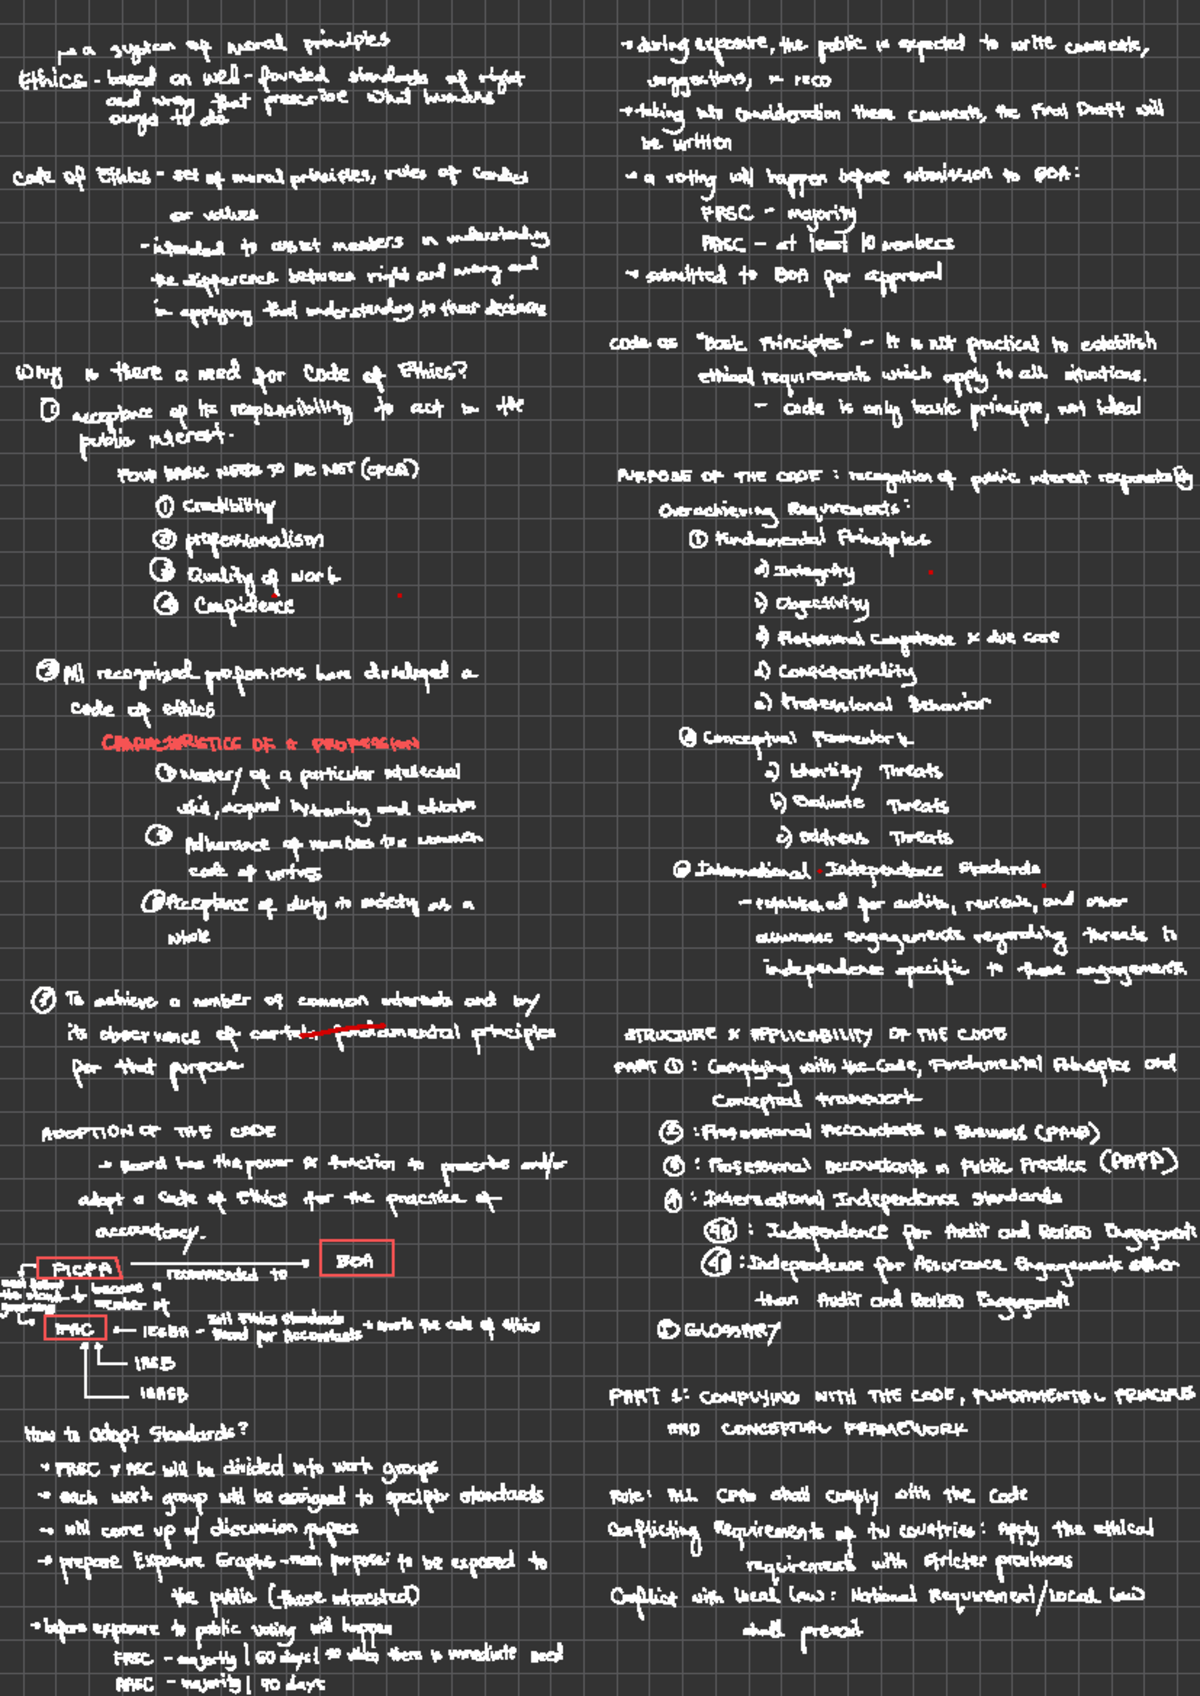 a system of moral principles
Ethics - based on well-founded standards of right
and wrong that prescribe what humans
ought to do
Code of Ethics - set of moral principles, rules of conduct
or values
- intended to assist members in understanding
the difference between right and wrong and
in applying that understanding to their decisions
Why is there a need for Code of Ethics?
① acceptance of its responsibility to act in the
public interest.
FOUR BASIC NEEDS TO BE MET (CPCQ)
① Credibility
② professionalism
③ Quality of work
④ Confidence
② All recognized professions have developed a
code of ethics
CHARACTERISTICS OF A PROFESSION
① Mastery of a particular intellectual
skill, acquired by training and education
② Adherence of members to a common
code of virtues
③ Acceptance of duty to society as a
whole
③ To achieve a number of common interests and by
its observance of certain fundamental principles
for that purpose
ADOPTION OF THE CODE
→ Board has the power & function to prescribe and/or
adopt a Code of Ethics for the practice of
accountancy.
PICPA recommended to BOA
become a
member of
IFAC ← IESBA - Int'l Ethics Standards
Board for Accountants → wrote the code of ethics
IAASB
How to adopt Standards?
→ FRSC & ASC will be divided into work groups
→ each work group will be assigned to specific standards
→ will come up w/ discussion papers
→ prepare Exposure Graphs - main purpose: to be exposed to
the public (those interested)
→ before exposure to public voting will happen
FRSC - majority | 60 days | 30 when there is immediate need
AASC - majority | 90 days
→ during exposure, the public is expected to write comments,
suggestions, & reco
→ taking into consideration these comments, the Final Draft will
be written
→ a voting will happen before submission to BOA:
FRSC - majority
AASC - at least 10 members
→ submitted to BOA for approval
Code as "Basic Principles" - It is not practical to establish
ethical requirements which apply to all situations.
- code is only basic principle, not ideal
PURPOSE OF THE CODE : recognition of public interest responsibility
Overachieving Requirements:
① Fundamental Principles
a) Integrity
b) Objectivity
c) Professional Competence & due care
d) Confidentiality
e) Professional Behavior
② Conceptual Framework
a) Identify Threats
b) Evaluate Threats
c) Address Threats
③ International Independence Standards
- established for audits, reviews, and other
assurance engagements regarding threats to
independence specific to those engagements.
STRUCTURE & APPLICABILITY OF THE CODE
PART ① : Complying with the Code, Fundamental Principles and
Conceptual Framework
② : Professional Accountants in Business (PAIB)
③ : Professional Accountants in Public Practice (PAPP)
④ : International Independence Standards
4A : Independence for Audit and Review Engagement
4B : Independence for Assurance Engagements other
than Audit and Review Engagements
⑤ GLOSSARY
PART 1: COMPLYING WITH THE CODE, FUNDAMENTAL PRINCIPLES
AND CONCEPTUAL FRAMEWORK
Rule: ALL CPAs shall comply with the Code
Conflicting Requirements of two countries: Apply the ethical
requirements with stricter provisions
Conflict with Local Law: National Requirement/Local law
shall prevail